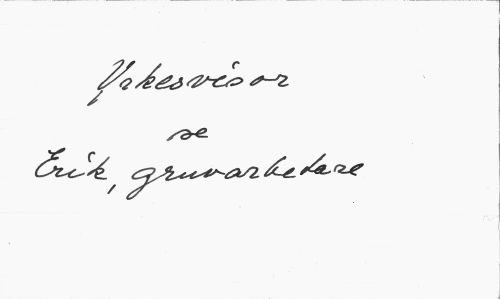 Yrkesvisor
se
Erik, gruvarbetare